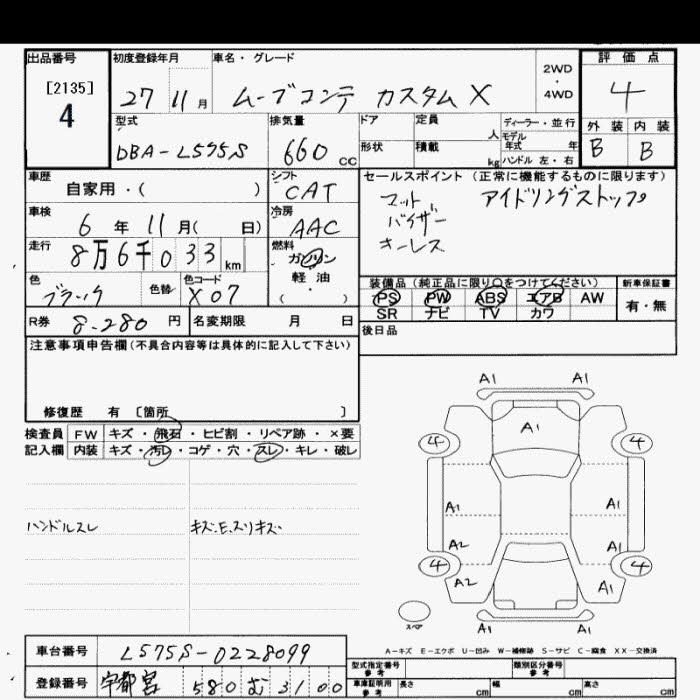 出品番号 初度登録年月 車名・グレード 評価点
[2135]
4 27 11月 ムーブコンテ カスタムX 2WD・4WD 4
型式 排気量 ドア 定員 人 ディーラー・並行 外装 内装
DBA-L575S 660 CC 形状 積載 kg モデル年式 年 ハンドル 左・右 B B
車歴 シフト セールスポイント (正常に機能するものに限ります)
自家用・( ) CAT マット アイドリングストップ
車検 冷房 バイザー
6年11月( 日) AAC キーレス
走行 燃料
8万6千033km ガソリン
軽・油
( )
色 色替 色コード 装備品 (純正品に限り○をつけてください) 新車保証書
ブラック X07 PS PW ABS エアB AW 有・無
SR ナビ TV カワ
R券 8.280円 名変期限 月 日 後日品
注意事項申告欄(不具合内容等は具体的に記入して下さい)
修復歴 有 〔箇所 〕
検査員 FW キズ・飛石・ヒビ割・リペア跡・×要
記入欄 内装 キズ・汚レ・コゲ・穴・スレ・キレ・破レ
ハンドルスレ キズ.E.スリキズ
A1 A1
A1
4 4
A1 A1
A2 A1
4 4
A2 A1
A1 A1
スペア
A-キズ E-エクボ U-凹み W-補修跡 S-サビ C-腐食 XX-交換済
車台番号 L575S-0228099
登録番号 宇都宮 580 む 3100
型式指定番号 参考 類別区分番号 参考
車庫証明用 参考 長さ cm 幅 cm 高さ cm